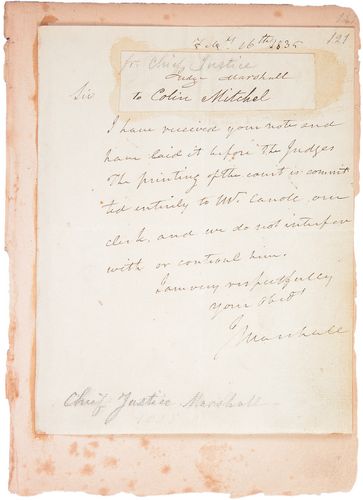 121
Feby 16th 1835
fr. Chief Justice
Judge Marshall
to Colin Mitchel
Sir
I have received your note and
have laid it before the Judges
The printing of the court is commit
ted entirely to Mr. Caroll our
clerk, and we do not interfere
with or control him.
I am very respectfully
your Obt
J Marshall
Chief Justice Marshall
1835